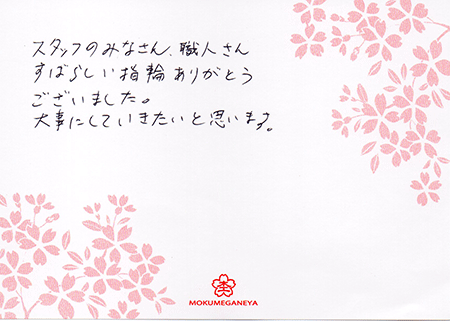 スタッフのみなさん、職人さん
すばらしい指輪ありがとう
ございました。
大事にしていきたいと思います。
MOKUMEGANEYA